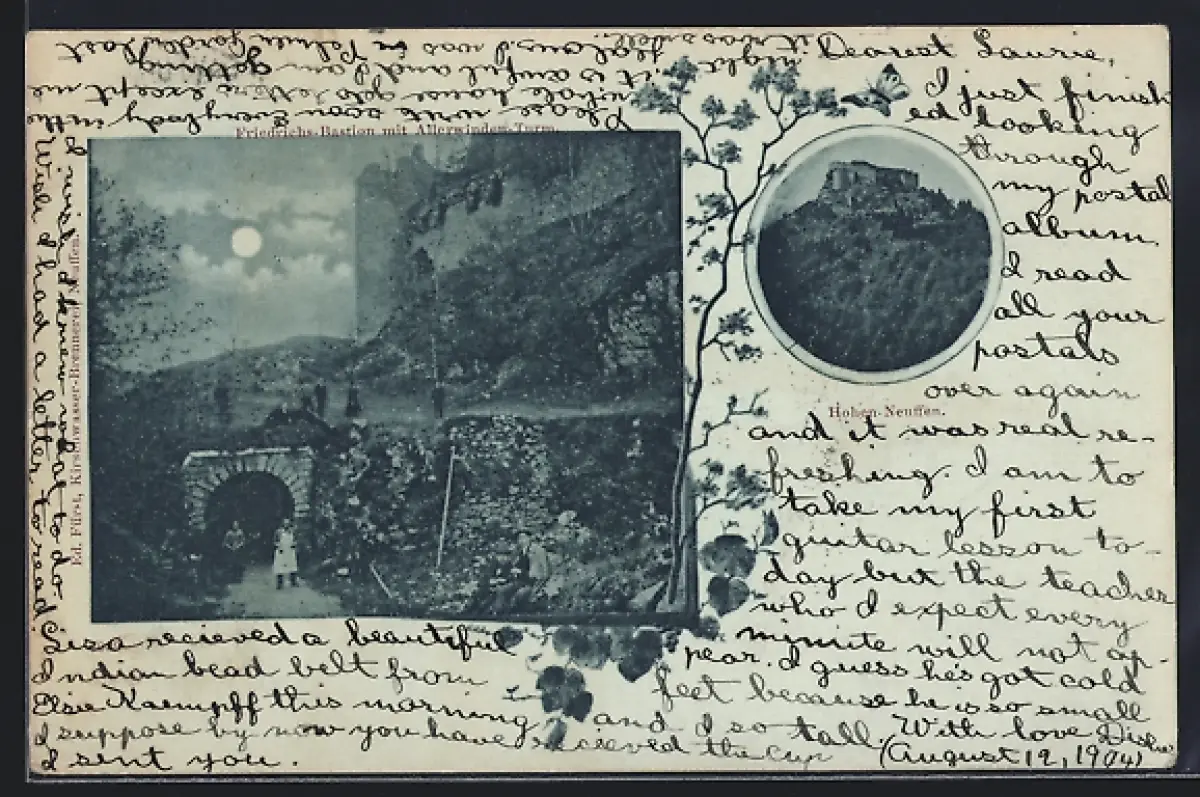 Dearest Laurie,
I just finish
ed looking
through
my postal
album.
I read
all your
postals
over again
and it was real re-
freshing. I am to
take my first
guitar lesson to-
day but the teacher
who I expect every
minute will not ap-
pear. I guess he's got cold
feet because he is so small
and I so tall. With love
(August 12, 1904)
Lisa recieved a beautiful
Indian bead belt from
Elsie Kaempff this morning
I suppose by now you have recieved the cup
I sent you.
I wish I knew what to do
Wish I had a letter to read.
Please write soon Everybody in the
whole house gets letters except me
it is awful and I am getting
jealous. I was in Palmer Garden last
night it was swell.
Friedrichs-Bastion mit Allerwinden-Turm.
Hohen-Neuffen.
Ed. Fürst, Kirschwasser-Brennerei, Neuffen.